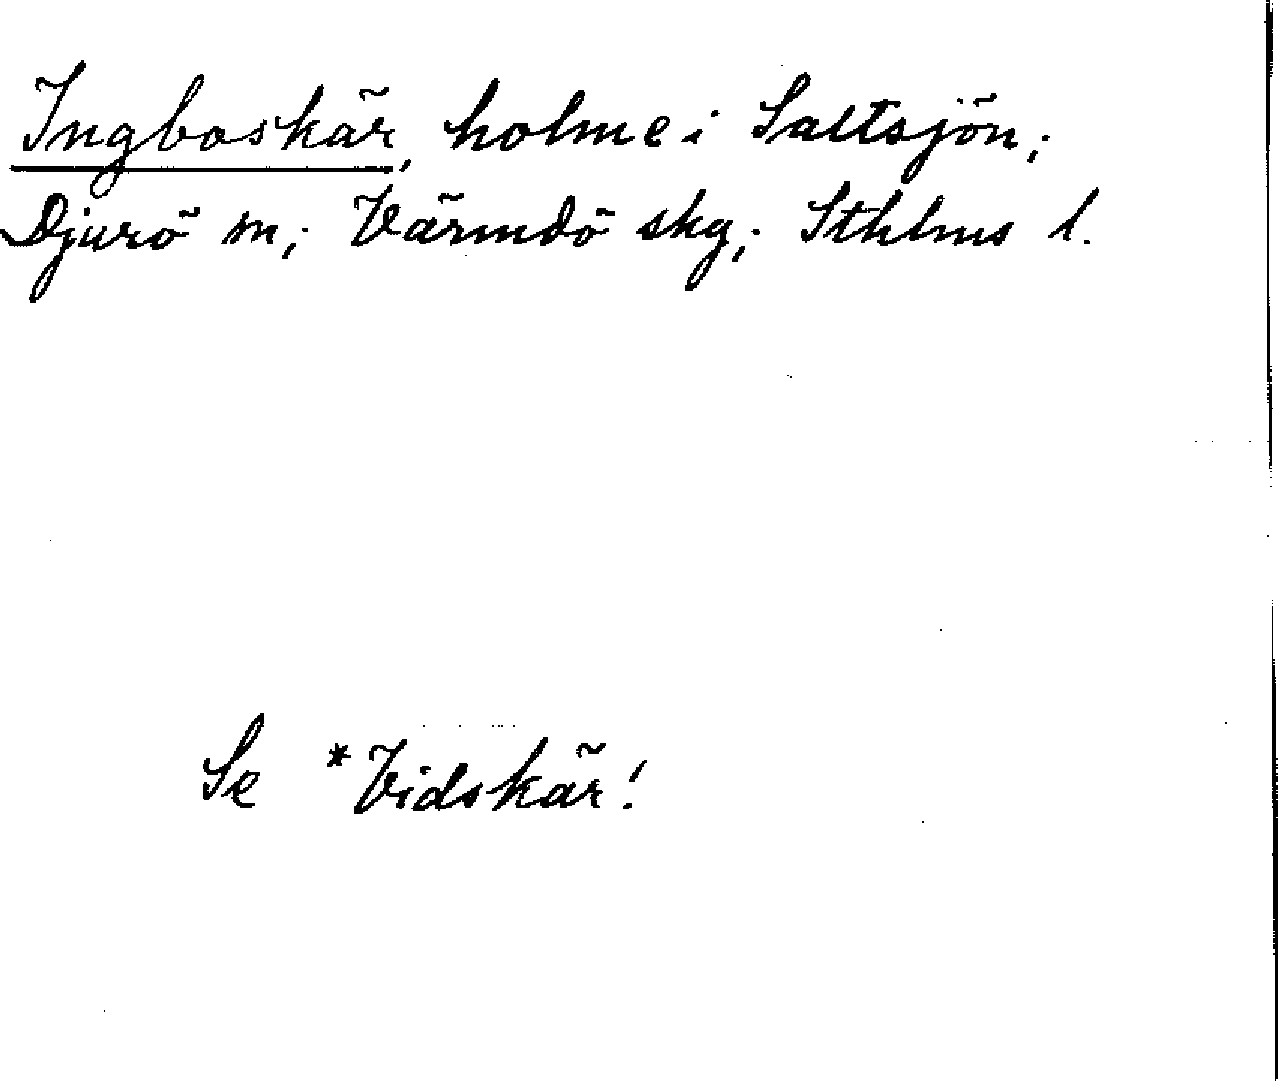 Ingboskär, holme i Saltsjön;
Djurö sn; Värmdö skg; Sthlms l.
Se *Vidskär!